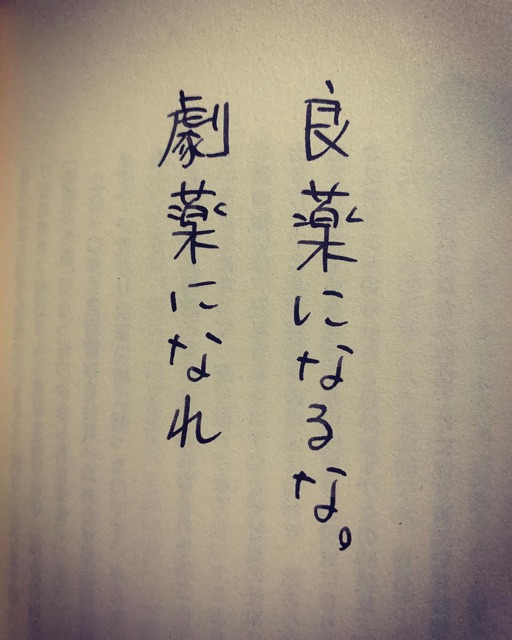 良薬になるな。
劇薬になれ